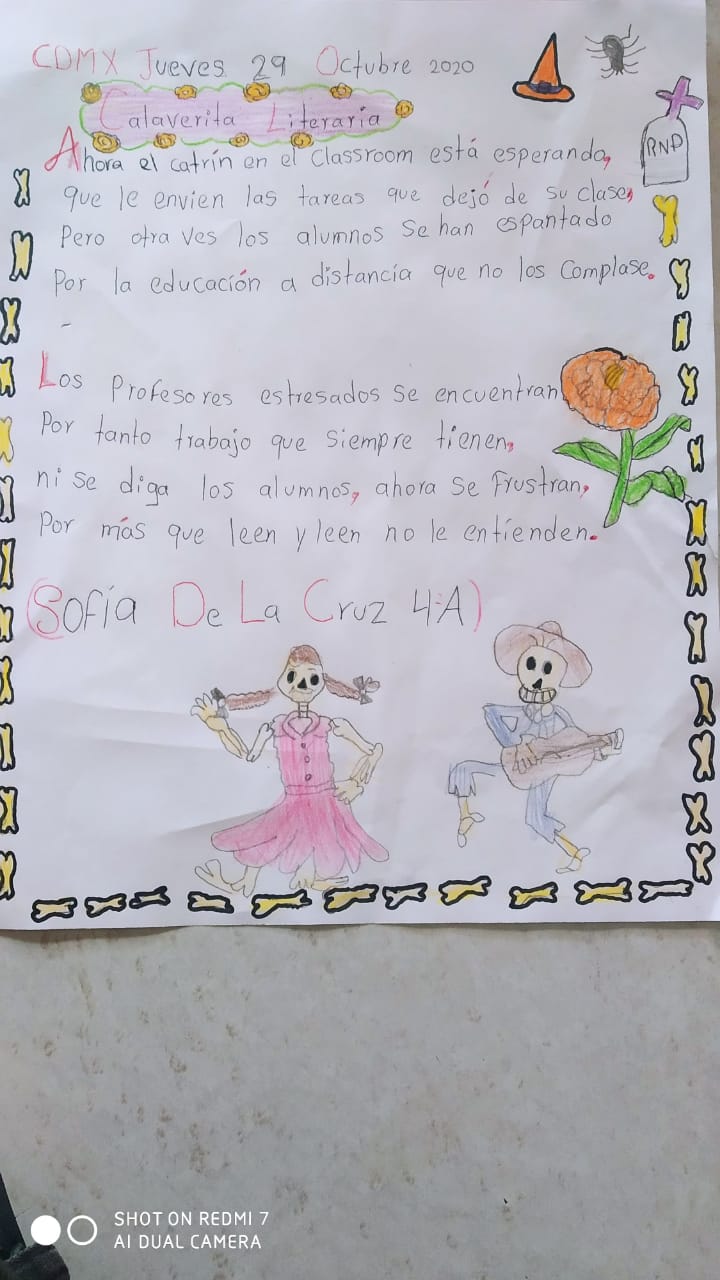 CDMX Jueves 29 Octubre 2020
Calaverita Literaria
RND
Ahora el catrín en el Classroom está esperando,
que le envien las tareas que dejó de su clase,
Pero otra Ves los alumnos se han espantado
Por la educación a distancia que no los Complase.
-
Los Profesores estresados se encuentran
Por tanto trabajo que siempre tienen,
ni se diga los alumnos, ahora se frustran,
Por más que leen y leen no le entienden.
(Sofía De La Cruz 4:A)
SHOT ON REDMI 7
AI DUAL CAMERA